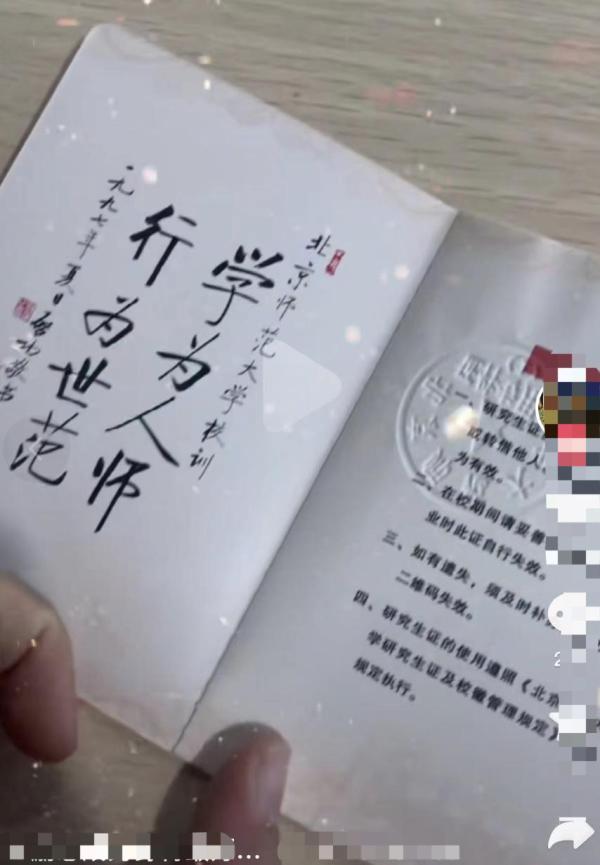 北京师范大学校训
学为人师
行为世范
一九九七年夏日启功敬书
一、研究生证
或转借他人
为有效。
二、在校期间请妥善
业时此证自行失效。
三、如有遗失，须及时补
二维码失效。
四、研究生证的使用遵照《北京
学研究生证及校徽管理规定》
规定执行。